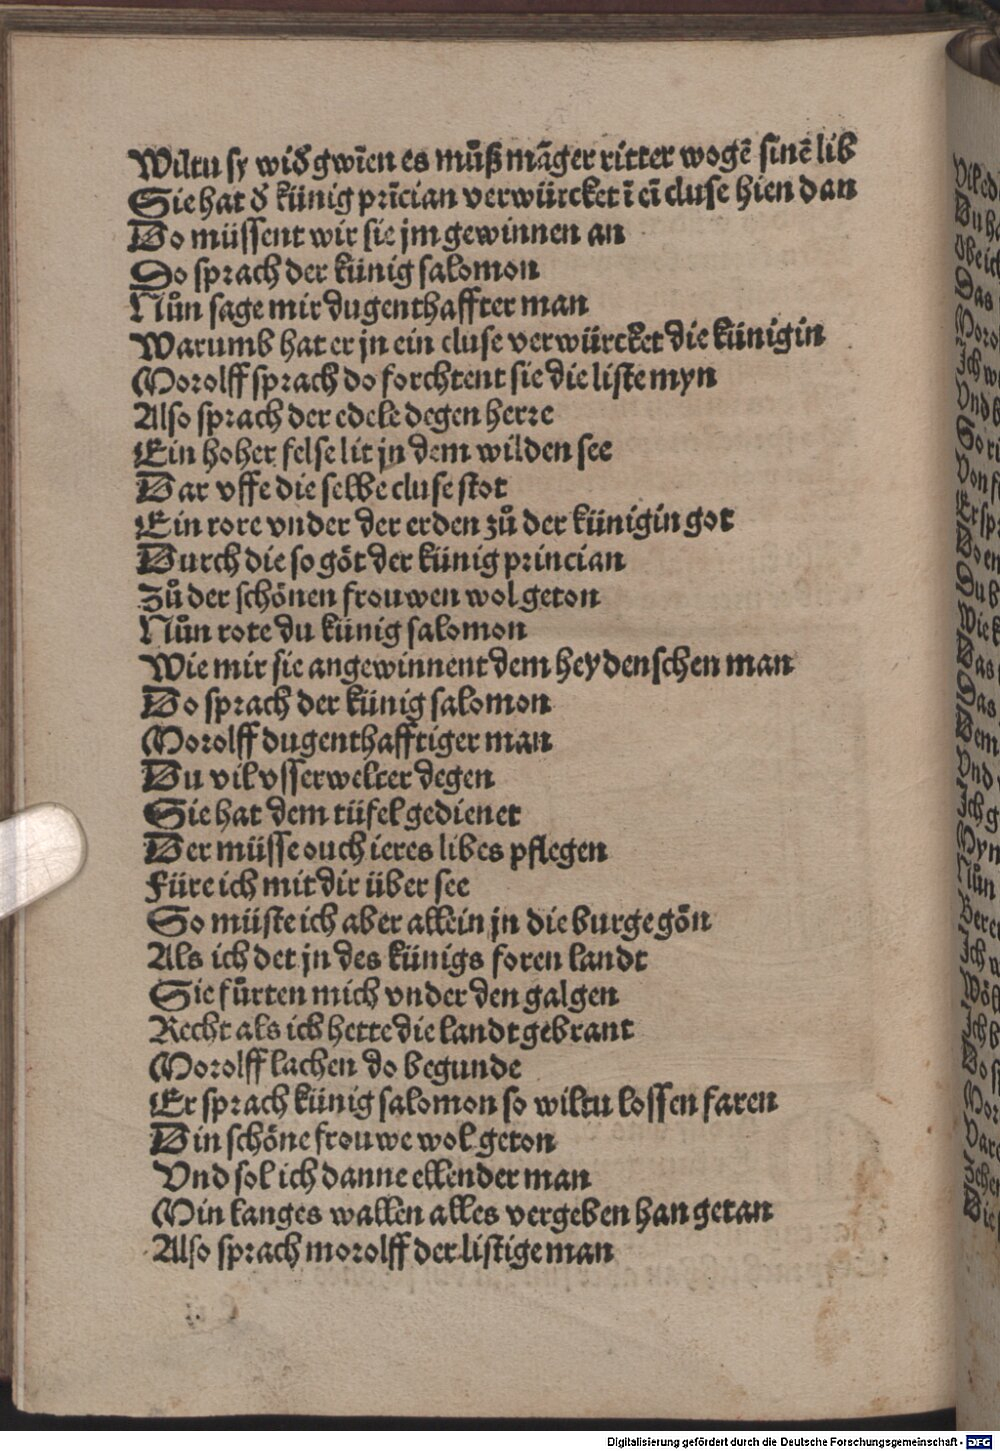 Wiltu sy widˀ gwīen es můß māger ritter wogē sinē lib
Sie hat dˀ künig prīcian verwürcket ī eī cluse hien dan
Do müssent wir sie jm gewinnen an
So sprach der künig salomon
Nůn sage mir dugenthaffter man
Warumb hat er jn ein cluse verwürcket die künigin
Morolff sprach do forchtent sie die liste myn
Also sprach der edele degen herre
Ein hoher felse lit jn dem wilden see
Dar vffe die selbe cluse stot
Ein rore vnder der erden zů der künigin got
Durch die so göt der künig princian
Zů der schönen frouwen wol geton
Nůn rote du künig salomon
Wie mir sie angewinnent dem heydenschen man
Do sprach der künig salomon
Morolff dugenthafftiger man
Du vil vsserwelter degen
Sie hat dem tüfel gedienet
Der müsse ouch ieres libes pflegen
Füre ich mit dir über see
So müste ich aber allein jn die burge gön
Als ich det jn des künigs foren landt
Sie fůrten mich vnder den galgen
Recht als ich hette die landt gebrant
Morolff lachen do begunde
Er sprach künig salomon so wiltu lossen faren
Din schöne frouwe wol geton
Vnd sol ich danne ellender man
Min langes wallen alles vergeben han getan
Also sprach morolff der listige man
Digitalisierung gefördert durch die Deutsche Forschungsgemeinschaft - DFG